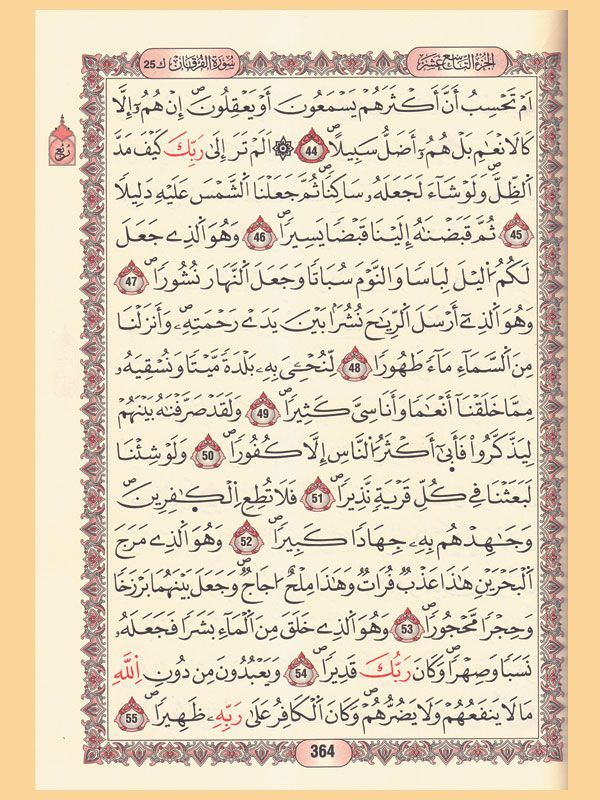 الجزء التاسع عشر
سورة الفرقان ك 25
اَمْ تَحْسِبُ أَنَّ أَكْثَرَهُمْ يَسْمَعُونَ أَوْ يَعْقِلُونَ ۖ إِنْ هُمُۥٓ إِلَّا
كَالَانْعَٰمِ بَلْ هُمُۥٓ أَضَلُّ سَبِيلًا ۖ 44 ۞ اَلَمْ تَرَ إِلَىٰ رَبِّكَ كَيْفَ مَدَّ
ربع
اَلظِّلَّ وَلَوْ شَآءَ لَجَعَلَهُۥ سَاكِنًا ۖ ثُمَّ جَعَلْنَا اَلشَّمْسَ عَلَيْهِ دَلِيلًا
45 ثُمَّ قَبَضْنَٰهُ إِلَيْنَا قَبْضًا يَسِيرًا ۖ 46 وَهُوَ اَلذِے جَعَلَ
لَكُمُ اَلَيْلَ لِبَاسًا وَالنَّوْمَ سُبَاتًا وَجَعَلَ اَلنَّهَارَ نُشُورًا ۖ 47
وَهُوَ اَلذِےٓ أَرْسَلَ اَلرِّيَٰحَ نُشُرًاۢ بَيْنَ يَدَےْ رَحْمَتِهِۦ وَأَنزَلْنَا
مِنَ اَلسَّمَآءِ مَآءً طَهُورًا 48 لِّنُحْـِۧيَ بِهِۦ بَلْدَةً مَّيْتًا وَنُسْقِيَهُۥ
مِمَّا خَلَقْنَآ أَنْعَٰمًا وَأَنَاسِيَّ كَثِيرًا ۖ 49 وَلَقَدْ صَرَّفْنَٰهُ بَيْنَهُمْ
لِيَذَّكَّرُوا۟ فَأَبَىٰٓ أَكْثَرُ اُلنَّاسِ إِلَّا كُفُورًا ۖ 50 وَلَوْ شِئْنَا
لَبَعَثْنَا فِے كُلِّ قَرْيَةٍ نَّذِيرًا ۖ 51 فَلَا تُطِعِ اِلْكَٰفِرِينَ ۖ
وَجَٰهِدْهُم بِهِۦ جِهَادًا كَبِيرًا ۖ 52 وَهُوَ اَلذِے مَرَجَ
اَلْبَحْرَيْنِ هَٰذَا عَذْبٌ فُرَاتٌ وَهَٰذَا مِلْحٌ اُجَاجٌ ۖ وَجَعَلَ بَيْنَهُمَا بَرْزَخًا
وَحِجْرًا مَّحْجُورًا ۖ 53 وَهُوَ اَلذِے خَلَقَ مِنَ اَلْمَآءِ بَشَرًا فَجَعَلَهُۥ
نَسَبًا وَصِهْرًا ۖ وَكَانَ رَبُّكَ قَدِيرًا ۖ 54 وَيَعْبُدُونَ مِن دُونِ اِللَّهِ
مَا لَا يَنفَعُهُمْ وَلَا يَضُرُّهُمْ ۖ وَكَانَ اَلْكَافِرُ عَلَىٰ رَبِّهِۦ ظَهِيرًا ۖ 55
364